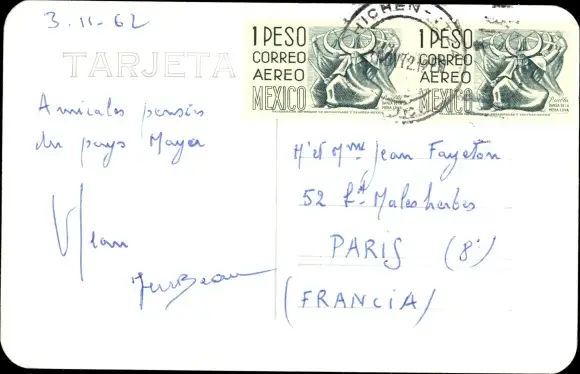 3.11.62
TARJETA
CHICHEN-
1 PESO
CORREO
AEREO
MEXICO
1 PESO
CORREO
AEREO
MEXICO
Puebla
DANZA DE LA
MEDIA LUNA
Amicales pensées
du pays Maya
Jean
Mr et Mme Jean Fayeton
52 Bd Malesherbes
PARIS (8e)
(FRANCIA)